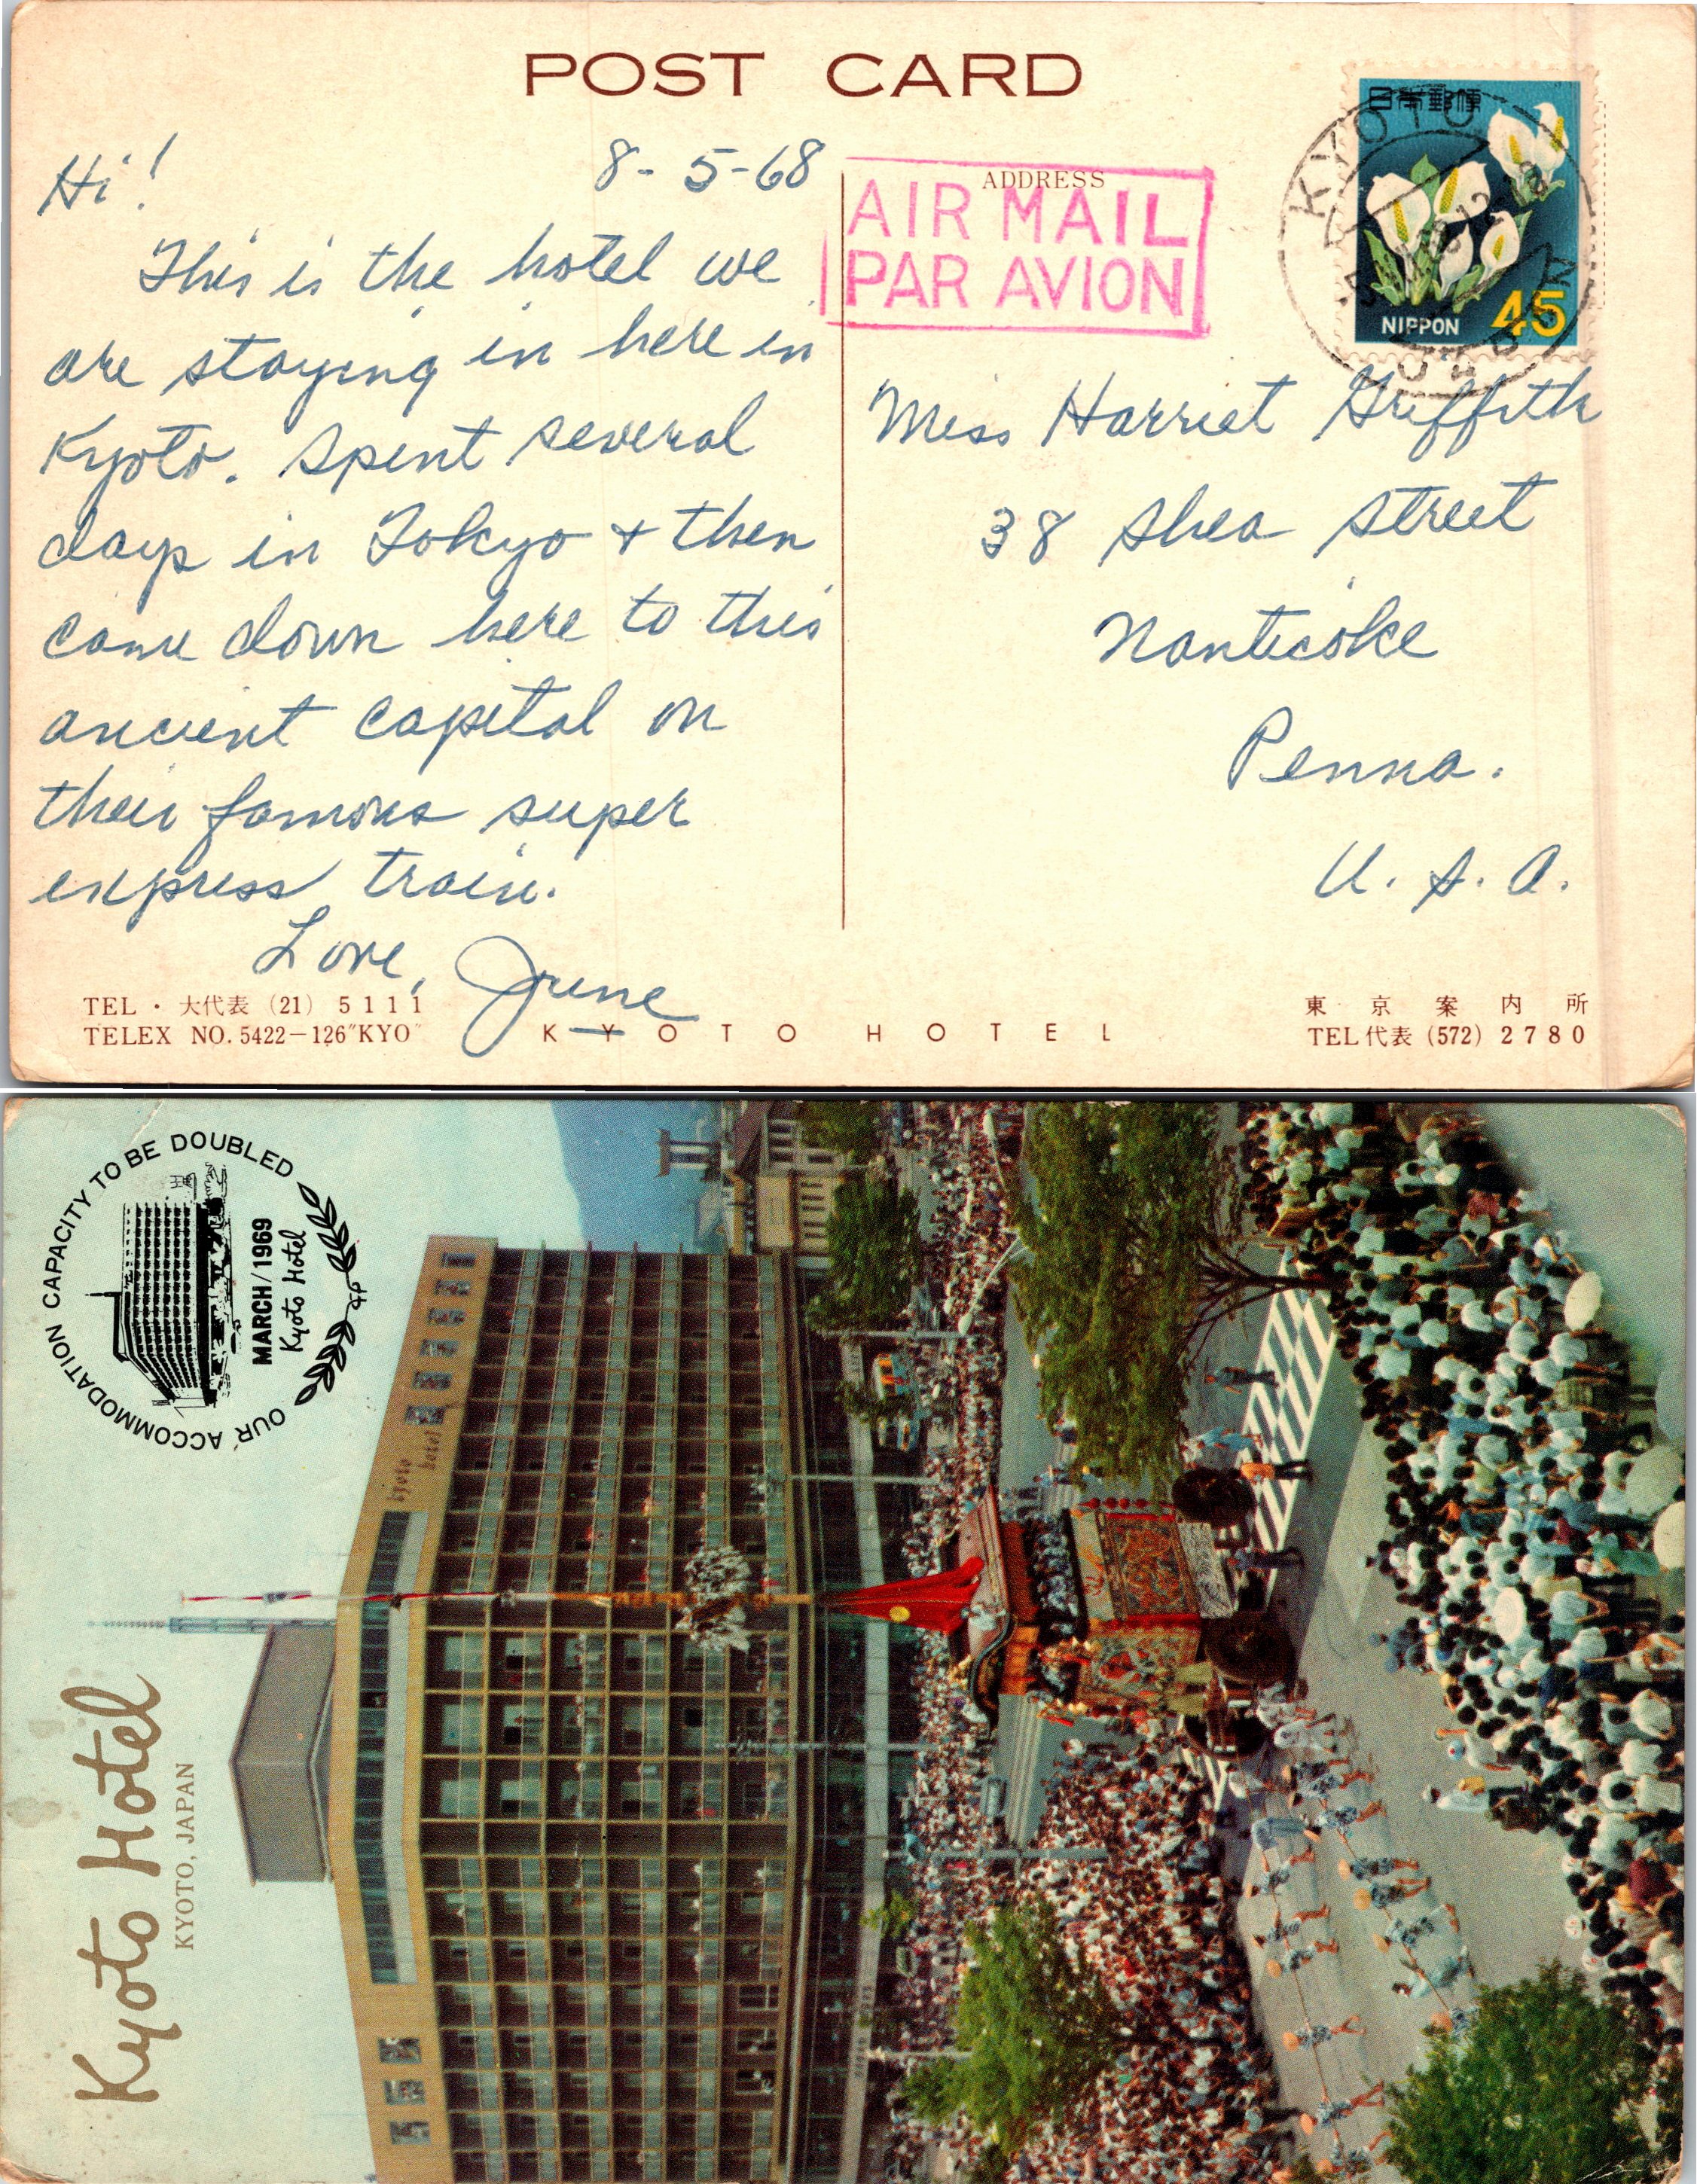 POST CARD
Hi! 8-5-68
This is the hotel we
are staying in here in
Kyoto. Spent several
days in Tokyo + then
came down here to this
ancient capital on
their famous super
express train.
Love, June
TEL・大代表 (21) 5111
TELEX NO. 5422-126"KYO"
KYOTO HOTEL
ADDRESS
AIR MAIL
PAR AVION
日本郵便
NIPPON 45
KYOTO
Miss Harriet Griffith
38 Shea Street
Nanticoke
Penna.
U. S. A.
東京案内所
TEL代表 (572) 2780
OUR ACCOMMODATION CAPACITY TO BE DOUBLED
MARCH/1969
Kyoto Hotel
Kyoto Hotel
KYOTO, JAPAN
kyoto hotel